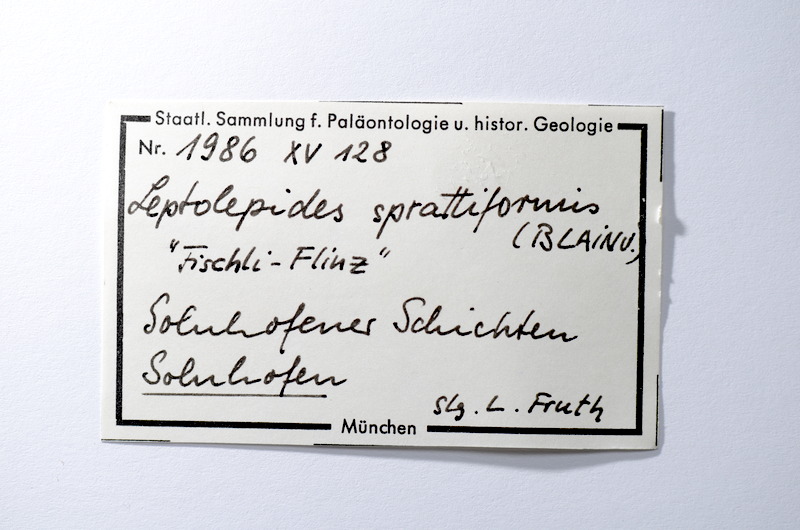 Staatl. Sammlung f. Paläontologie u. histor. Geologie
Nr. 1986 XV 128
Leptolepides sprattiformis
(BLAINV.)
"Fischli-Flinz"
Solnhofener Schichten
Solnhofen
Slg. L. Fruth
München